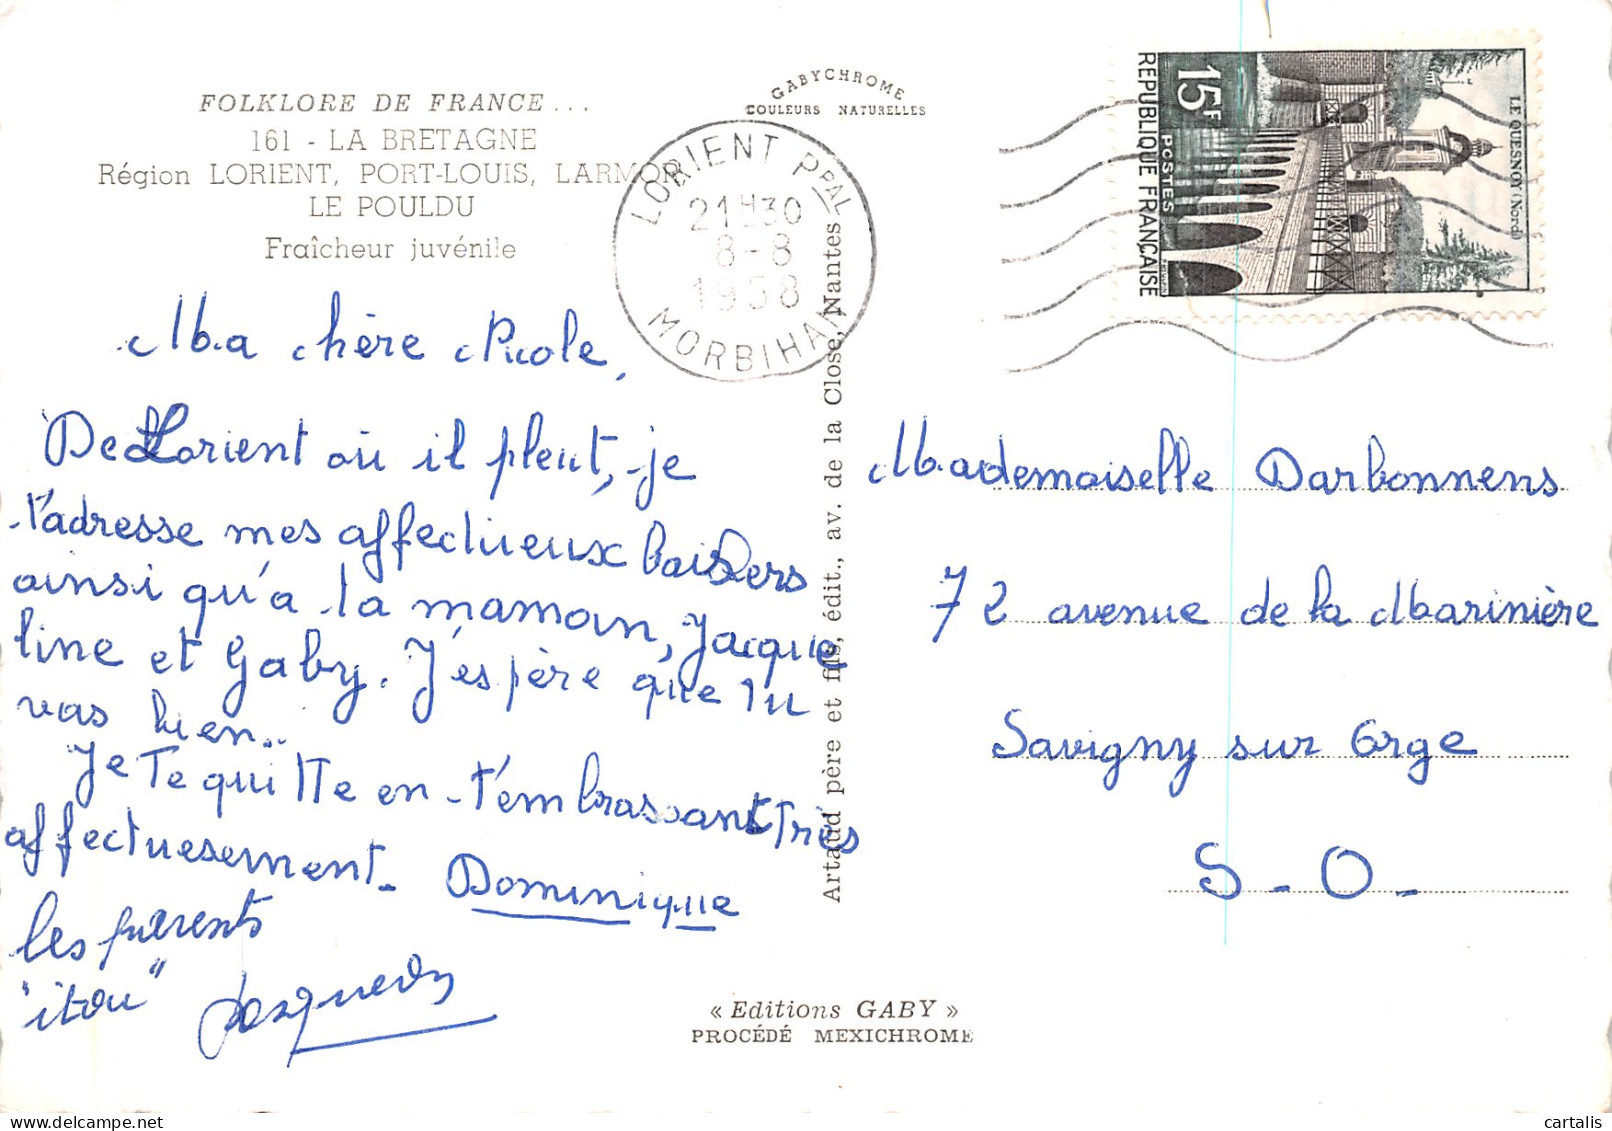 FOLKLORE DE FRANCE...
161 - LA BRETAGNE
Région LORIENT, PORT-LOUIS, LARMOR
LE POULDU
Fraîcheur juvénile
GABYCHROME
COULEURS NATURELLES
LORIENT PPAL
21H30
8-8
1958
MORBIHAN
15F
POSTES
REPUBLIQUE FRANÇAISE
LE QUESNOY (Nord)
Ma chère Nicole,
De Lorient où il pleut, je
t'adresse mes affectueux baisers
ainsi qu'à ta maman, Jacque
line et Gaby. J'espère que tu
vas bien..
Je te quitte en t'embrassant très
affectuesement. Dominique
les parents
"itou"
Artaud père et fils, édit., av. de la Close, Nantes
Mademoiselle Darbonnens
72 avenue de la Marinière
Savigny sur Orge
S - O -
« Editions GABY »
PROCÉDÉ MEXICHROME
cartalis